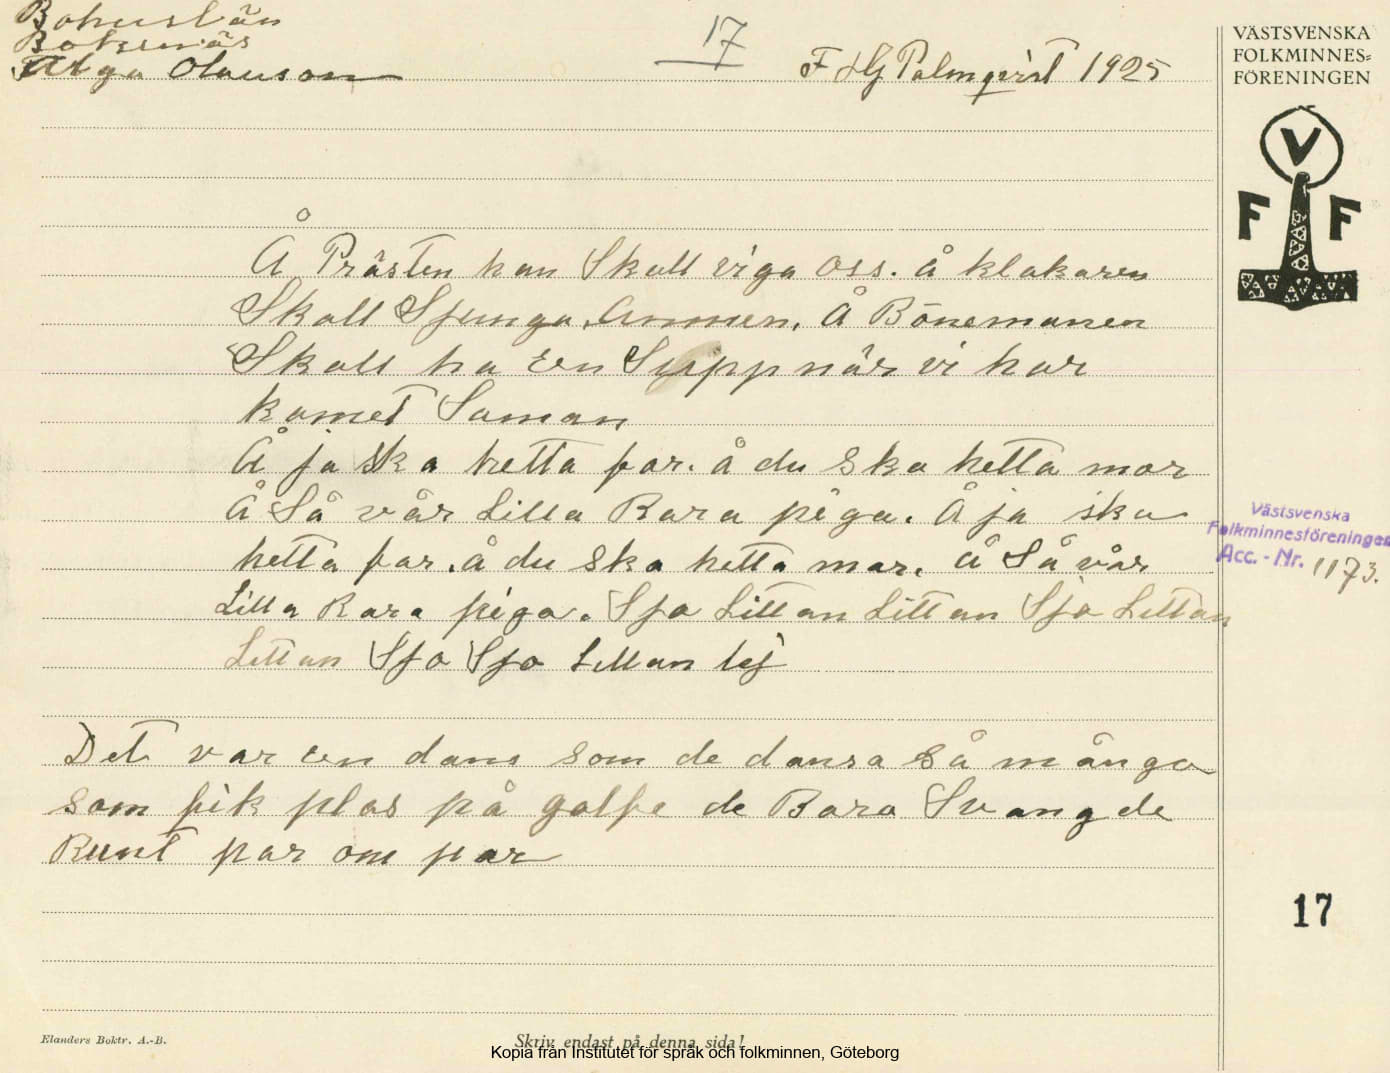 Bohuslän
Bokenäs
Alga Olauson
17
F HG Palmqvist 1925
VÄSTSVENSKA
FOLKMINNES=
FÖRENINGEN
V
F F
Å Prästen han Skall viga oss. å klakaren
Skall Sjunga Ammen, Å Bönemanen
Skall ha een Supp när vi har
komet Saman
Å ja Ska hetta far. å du Ska hetta mor
Å Så vår Lilla Rara piga. Å ja ska
hetta far. å du Ska hetta mor. å Så vår
Lilla Rara piga. Sja Littan Littan Sja Littan
Littan Sja Sja Littan lej
Det var een dans som de dansa Så många
som fik plas på golfe de Bara Svangde
Runt par om par
Västsvenska
Folkminnesföreningen
Acc. - Nr. 1173.
17
Elanders Boktr. A.-B.
Skriv endast på denna sida!
Kopia från Institutet för språk och folkminnen, Göteborg